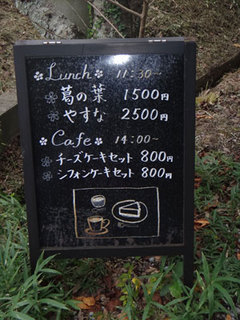 Lunch 11:30~
葛の葉 1500円
やすな 2500円
Cafe 14:00~
チーズケーキセット 800円
シフォンケーキセット 800円